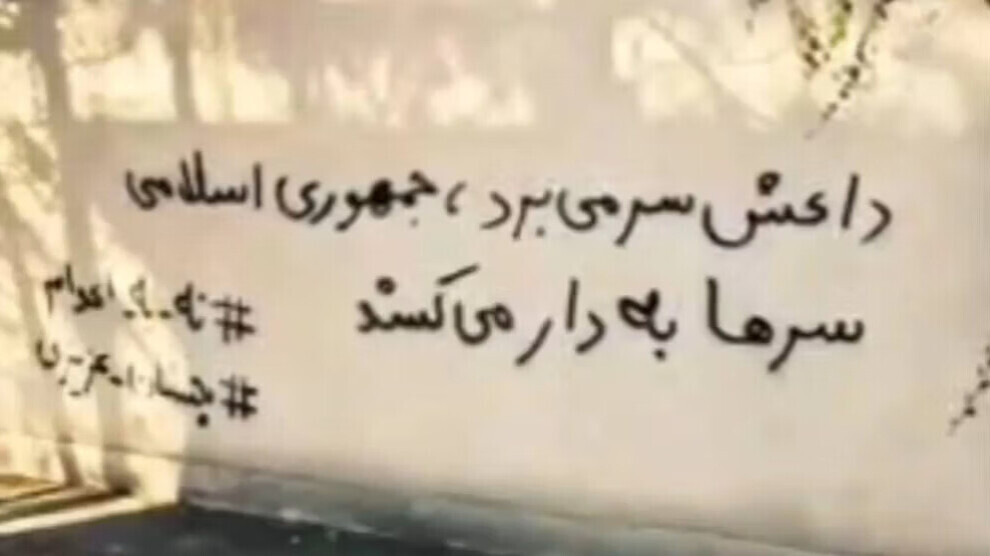 داعش سر می برد ، جمهوری اسلامی
سرها به دار می کشد
#نه_به_اعدام
#پخشان_عزیزی